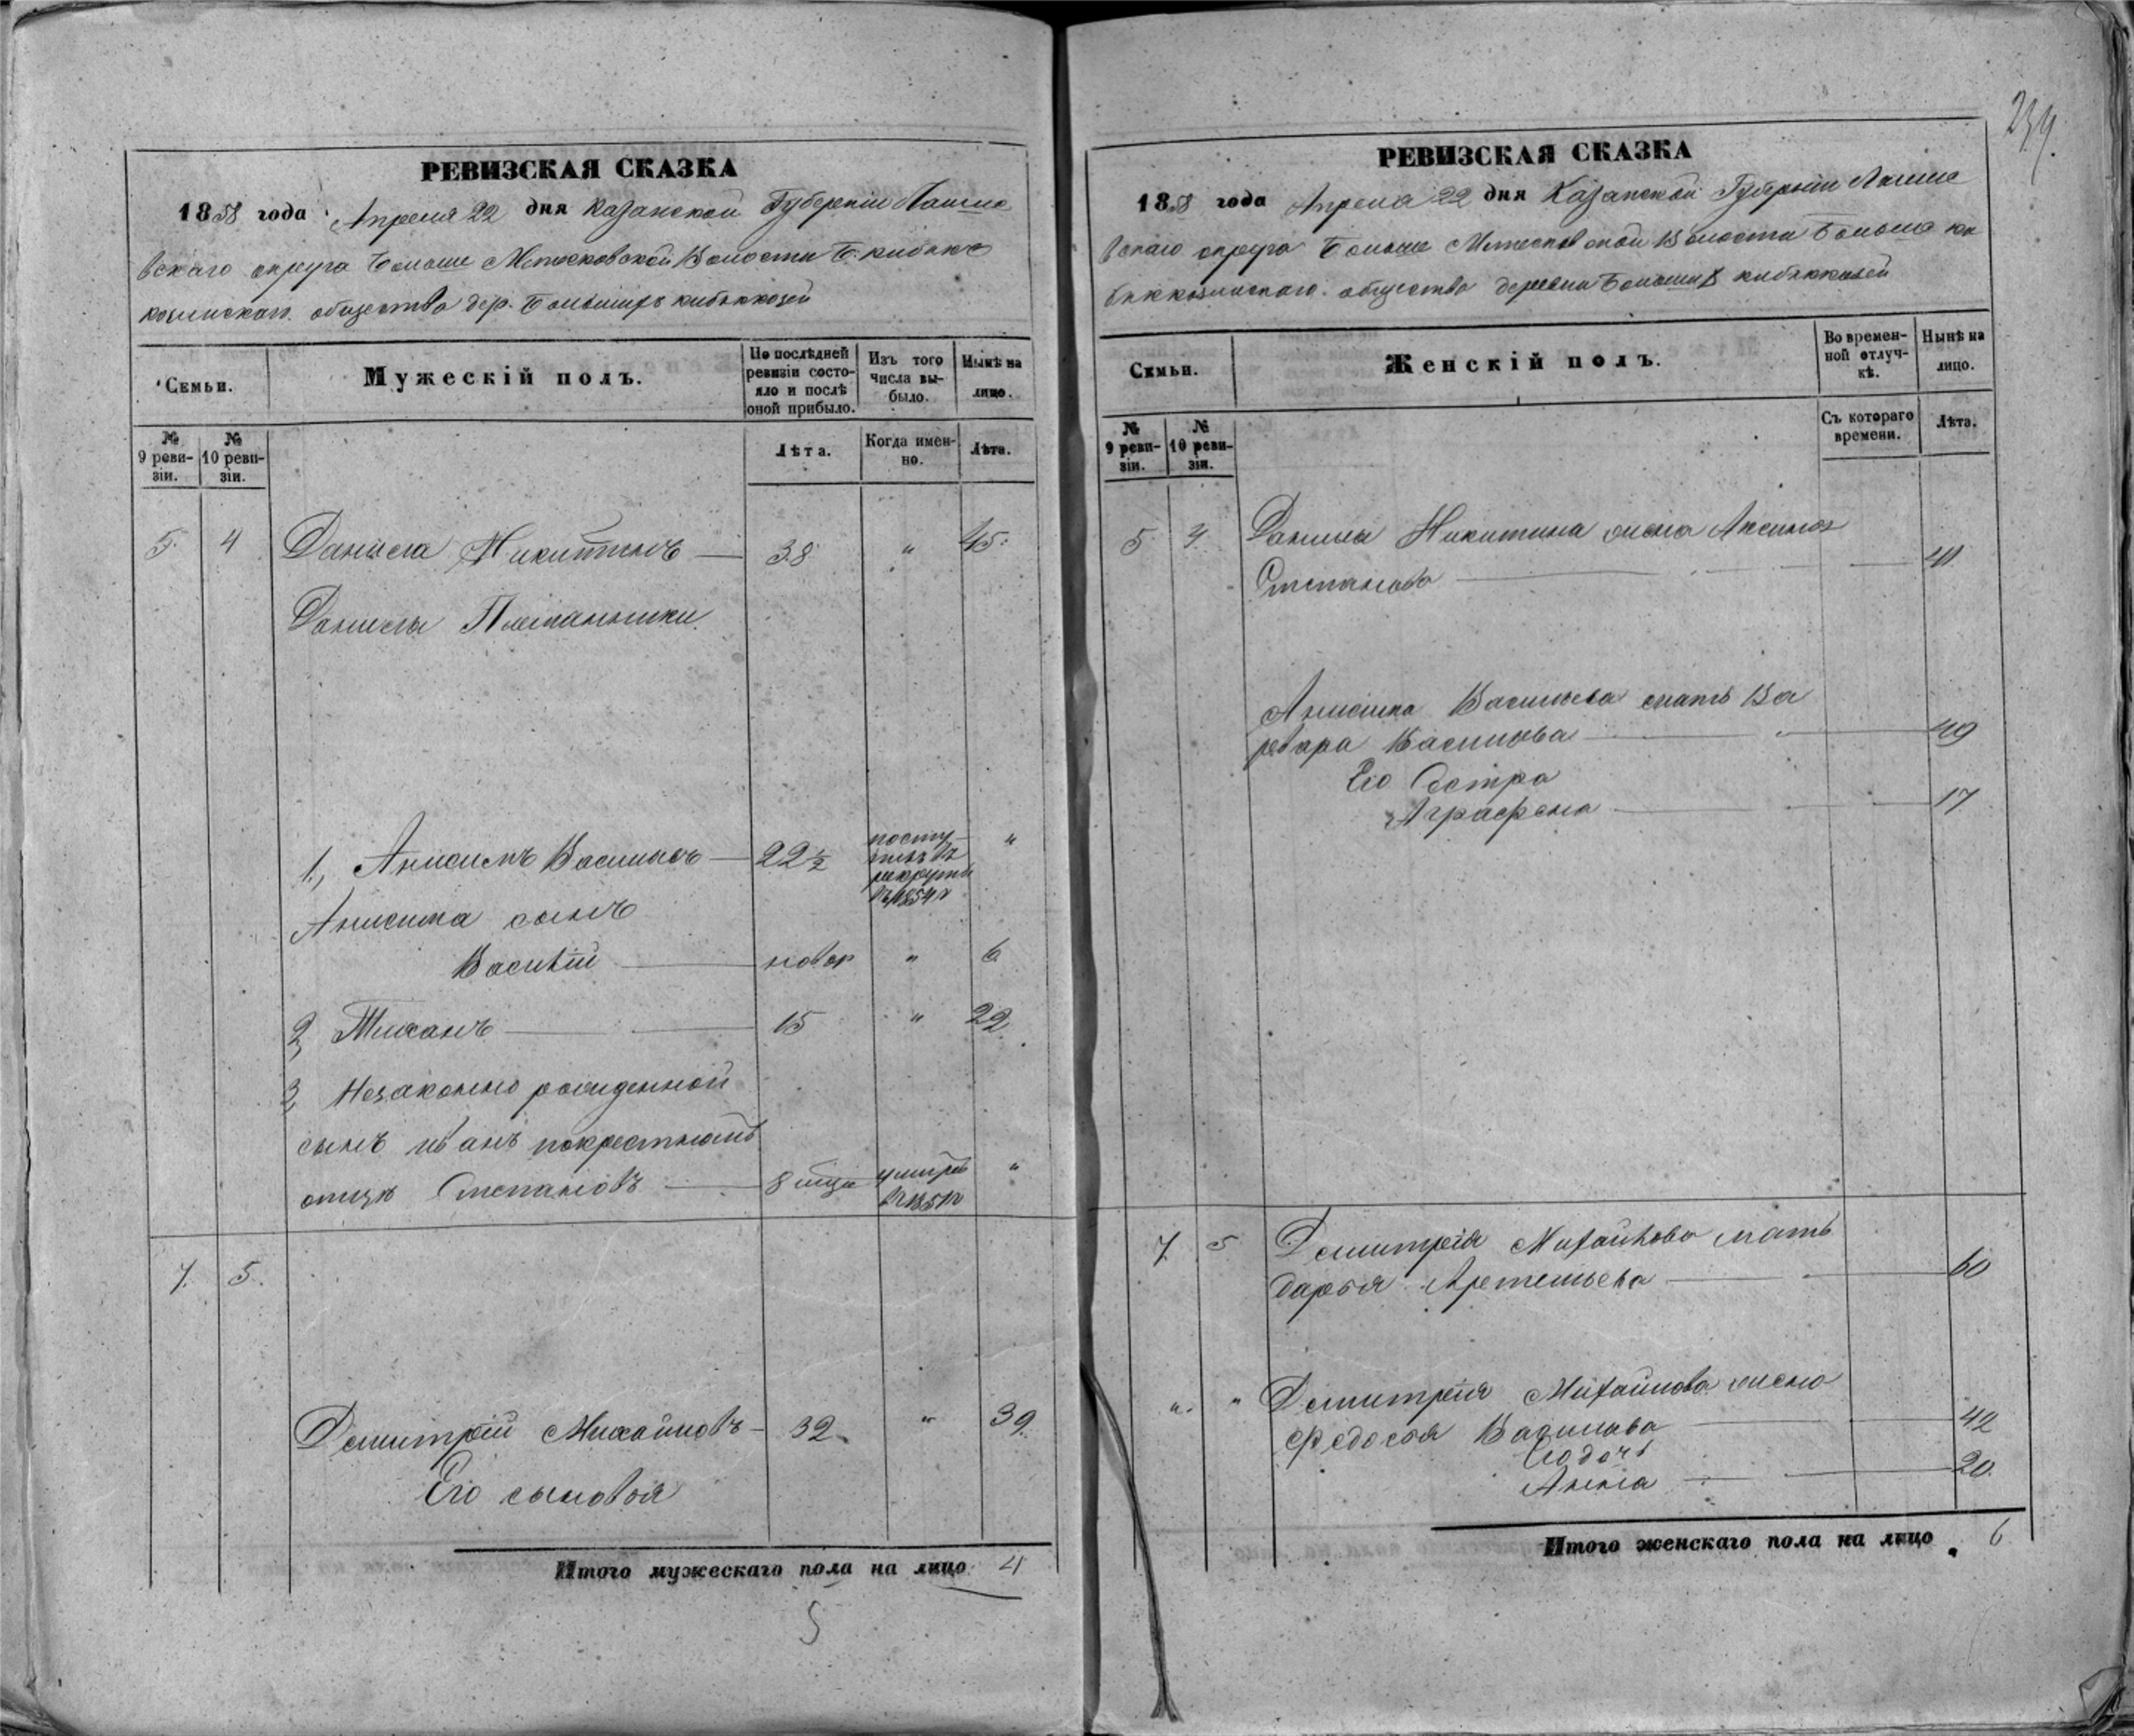 РЕВИЗСКАЯ СКАЗКА
1858 года Апреля 22 дня Казанской Губерніи Лаише
вскаго округа Больше Метесковской Волости Б. кибякъ
козинскаго общества дер. Большихъ кибяккозей
Семьи.
Мужескій полъ.
По послѣдней ревизіи состояло и послѣ оной прибыло.
Изъ того числа выбыло.
Нынѣ на лицо.
№ 9 ревизіи.
№ 10 ревизіи.
Лѣта.
Когда именно.
Лѣта.
5. 4 Данила Никитинъ — 38 " 45.
Данилы Племянники
1, Анисимъ Васильевъ — 22 ½ поступилъ въ рекруты въ 1854 г "
Анисима сынъ
Василій — новор " 6
2, Тиханъ — 15 " 22.
3, Незаконно рожденной
сынъ иванъ покрестному
отцу Степановъ — 8 меся умеръ "
7. 5.
Дмитрій Михайловъ — 32 " 39.
Его сыновья
Итого мужескаго пола на лицо 4
5
239.
РЕВИЗСКАЯ СКАЗКА
1858 года Апреля 22 дня Казанской Губерніи Лаише
вскаго округа Больше Метесковской Волости Больше ки
бяккозинскаго общества деревни Большихъ кибяккозей
Семьи.
Женскій полъ.
Во временной отлучкѣ.
Нынѣ на лицо.
№ 9 ревизіи.
№ 10 ревизіи.
Съ котораго времени.
Лѣта.
5 4. Данилы Никитина жена Аксинья
Степанова — 41
Анисима Васильева мать Ва
рвара Васильева — 49
Его Сестра
Аграфена — 17
7. 5 Дмитрія Михайлова мать
дарья Артемьева — 60
". " Дмитрія Михайлова жена
Федосья Васильева — 42
Его дочь
Анна — 20.
Итого женскаго пола на лицо. 6